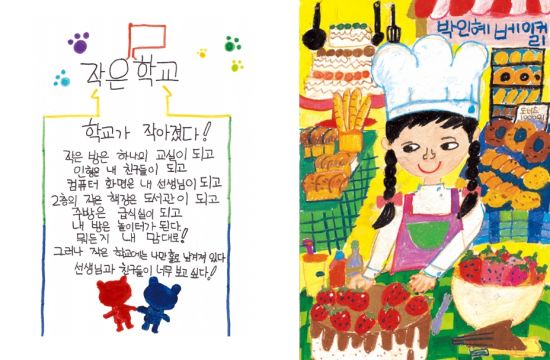 작은 학교
학교가 작아졌다!
작은 방은 하나의 교실이 되고
인형은 내 친구들이 되고
컴퓨터 화면은 내 선생님이 되고
2층의 작은 책장은 도서관이 되고
주방은 급식실이 되고
내 방은 놀이터가 된다.
뭐든지 내 맘대로!
그러나 작은 학교에는 나만 홀로 남겨져 있다
선생님과 친구들이 너무 보고 싶다!
박인혜 베이커
도너츠
1900원